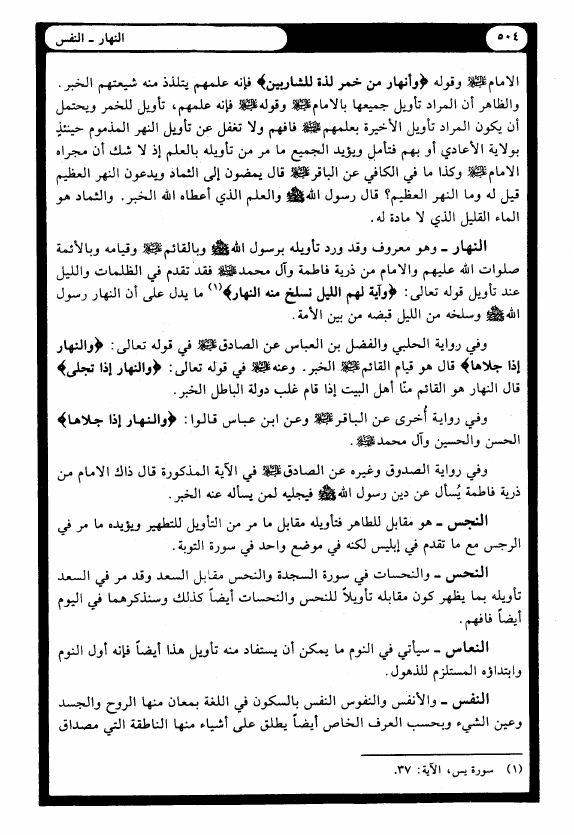 ٥٠٤
النهار ـ النفس
الامام ﷺ وقوله ﴿وأنهار من خمر لذة للشاربين﴾ فإنه علمهم يتلذذ منه شيعتهم الخبر.
والظاهر أن المراد تأويل جميعها بالامام ﷺ وقوله ﷺ فإنه علمهم، تأويل للخمر ويحتمل
أن يكون المراد تأويل الأخيرة بعلمهم ﷺ فافهم ولا تغفل عن تأويل النهر المذموم حينئذٍ
بولاية الأعادي أو بهم فتأمل ويؤيد الجميع ما مر من تأويله بالعلم إذ لا شك أن مجراه
الامام ﷺ وكذا ما في الكافي عن الباقر ﷺ قال يمضون إلى الثماد ويدعون النهر العظيم
قيل له وما النهر العظيم؟ قال رسول الله ﷺ والعلم الذي أعطاه الله الخبر. والثماد هو
الماء القليل الذي لا مادة له.
النهار ـ وهو معروف وقد ورد تأويله برسول الله ﷺ وبالقائم ﷺ وقيامه وبالأئمة
صلوات الله عليهم والامام من ذرية فاطمة وآل محمد ﷺ فقد تقدم في الظلمات والليل
عند تأويل قوله تعالى: ﴿وآية لهم الليل نسلخ منه النهار﴾(١) ما يدل على أن النهار رسول
الله ﷺ وسلخه من الليل قبضه من بين الأمة.
وفي رواية الحلبي والفضل بن العباس عن الصادق ﷺ في قوله تعالى: ﴿والنهار
إذا جلاها﴾ قال هو قيام القائم ﷺ الخبر. وعنه ﷺ في قوله تعالى: ﴿والنهار إذا تجلى﴾
قال النهار هو القائم منّا أهل البيت إذا قام غلب دولة الباطل الخبر.
وفي رواية أُخرى عن الباقر ﷺ وعن ابن عباس قالوا: ﴿والنهار إذا جلاها﴾
الحسن والحسين وآل محمد ﷺ.
وفي رواية الصدوق وغيره عن الصادق ﷺ في الآية المذكورة قال ذاك الامام من
ذرية فاطمة يُسأل عن دين رسول الله ﷺ فيجليه لمن يسأله عنه الخبر.
النجس ـ هو مقابل للطاهر فتأويله مقابل ما مر من التأويل للتطهير ويؤيده ما مر في
الرجس مع ما تقدم في إبليس لكنه في موضع واحد في سورة التوبة.
النحس ـ والنحسات في سورة السجدة والنحس مقابل السعد وقد مر في السعد
تأويله بما يظهر كون مقابله تأويلاً للنحس والنحسات أيضاً كذلك وسنذكرهما في اليوم
أيضاً فافهم.
النعاس ـ سيأتي في النوم ما يمكن أن يستفاد منه تأويل هذا أيضاً فإنه أول النوم
وابتداؤه المستلزم للذهول.
النفس ـ والأنفس والنفوس النفس بالسكون في اللغة بمعان منها الروح والجسد
وعين الشيء وبحسب العرف الخاص أيضاً يطلق على أشياء منها الناطقة التي مصداق
(١) سورة يس، الآية: ٣٧.